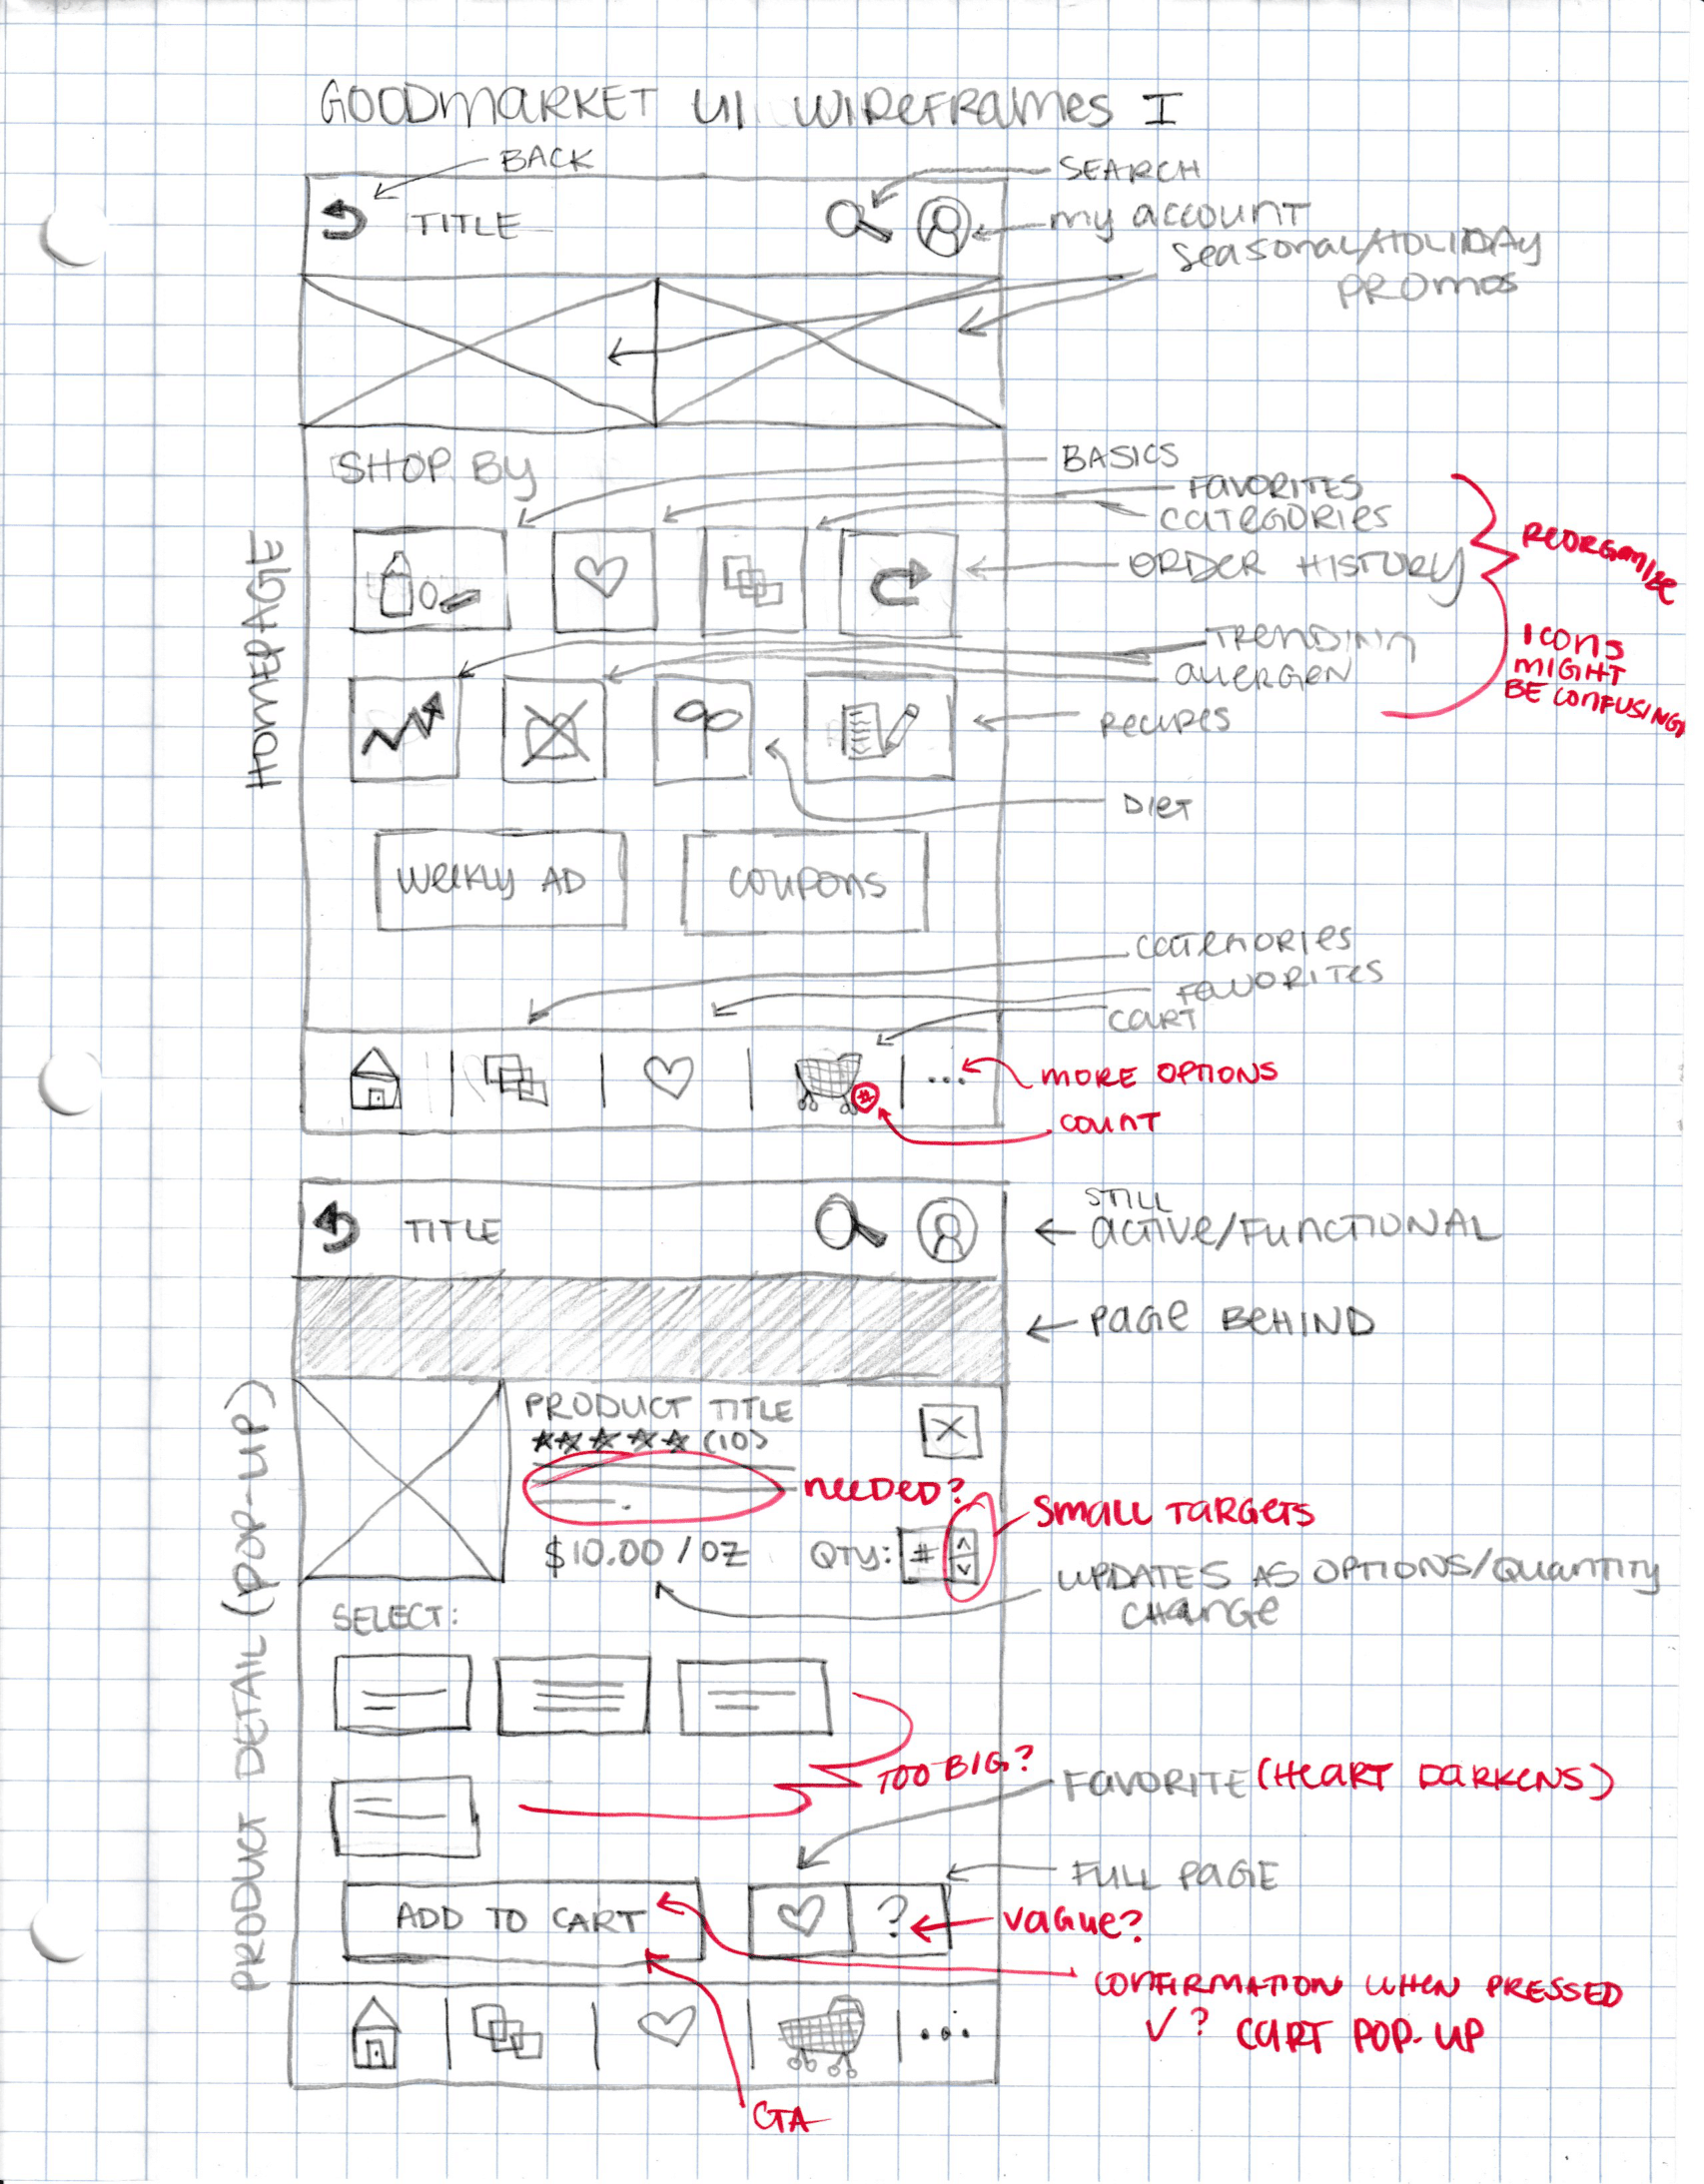 GOODMARKET UI WIREFRAMES I
BACK
SEARCH
TITLE
MY ACCOUNT
SEASONAL/HOLIDAY
PROMOS
SHOP BY
BASICS
FAVORITES
CATEGORIES
ORDER HISTORY
REORGANIZE
TRENDING
ALLERGEN
RECIPES
ICONS
MIGHT
BE CONFUSING
DIET
HOMEPAGE
WEEKLY AD
COUPONS
CATEGORIES
FAVORITES
CART
#
...
MORE OPTIONS
COUNT
TITLE
STILL
ACTIVE/FUNCTIONAL
PAGE BEHIND
PRODUCT DETAIL (POP-UP)
PRODUCT TITLE
(10)
X
NEEDED?
SMALL TARGETS
$10.00 / OZ
QTY: #
UPDATES AS OPTIONS/QUANTITY
CHANGE
SELECT:
TOO BIG?
FAVORITE (HEART DARKENS)
FULL PAGE
ADD TO CART
?
VAGUE?
CONFIRMATION WHEN PRESSED
✓? CART POP-UP
...
CTA